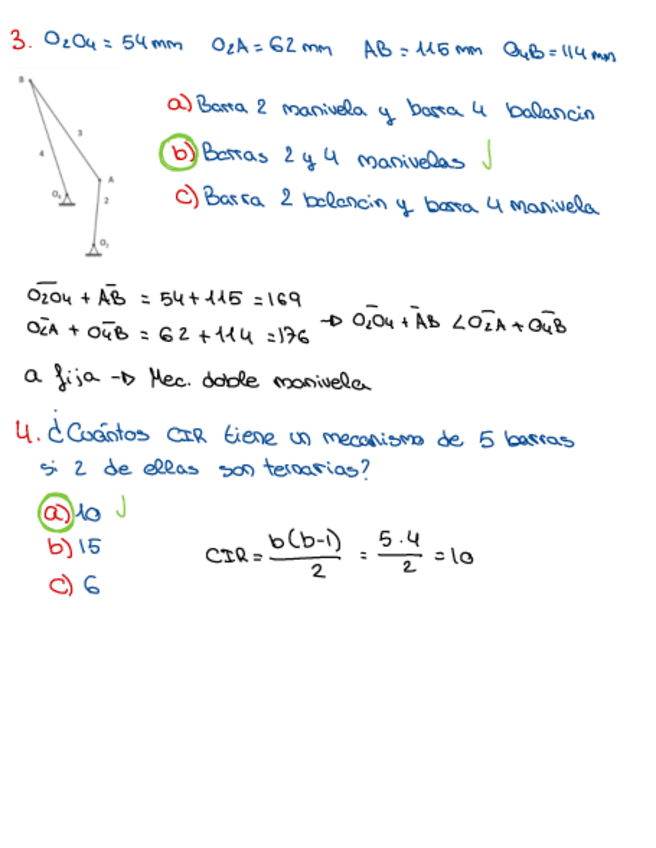 3. O₂O₄ = 54 mm O₂A = 62 mm AB = 115 mm O₄B = 114 mm
B
a) Barra 2 manivela y barra 4 balancin
3
4
b) Barras 2 y 4 manivelas
A
O₄
2
c) Barra 2 balancin y barra 4 manivela
O₂
O₂O₄ + AB = 54 + 115 = 169
O₂A + O₄B = 62 + 114 = 176 → O₂O₄ + AB < O₂A + O₄B
a fija → Mec. doble manivela
4. ¿Cuántos CIR tiene un mecanismo de 5 barras
si 2 de ellas son ternarias?
a) 10
b) 15
CIR = b(b-1)/2 = 5·4/2 = 10
c) 6